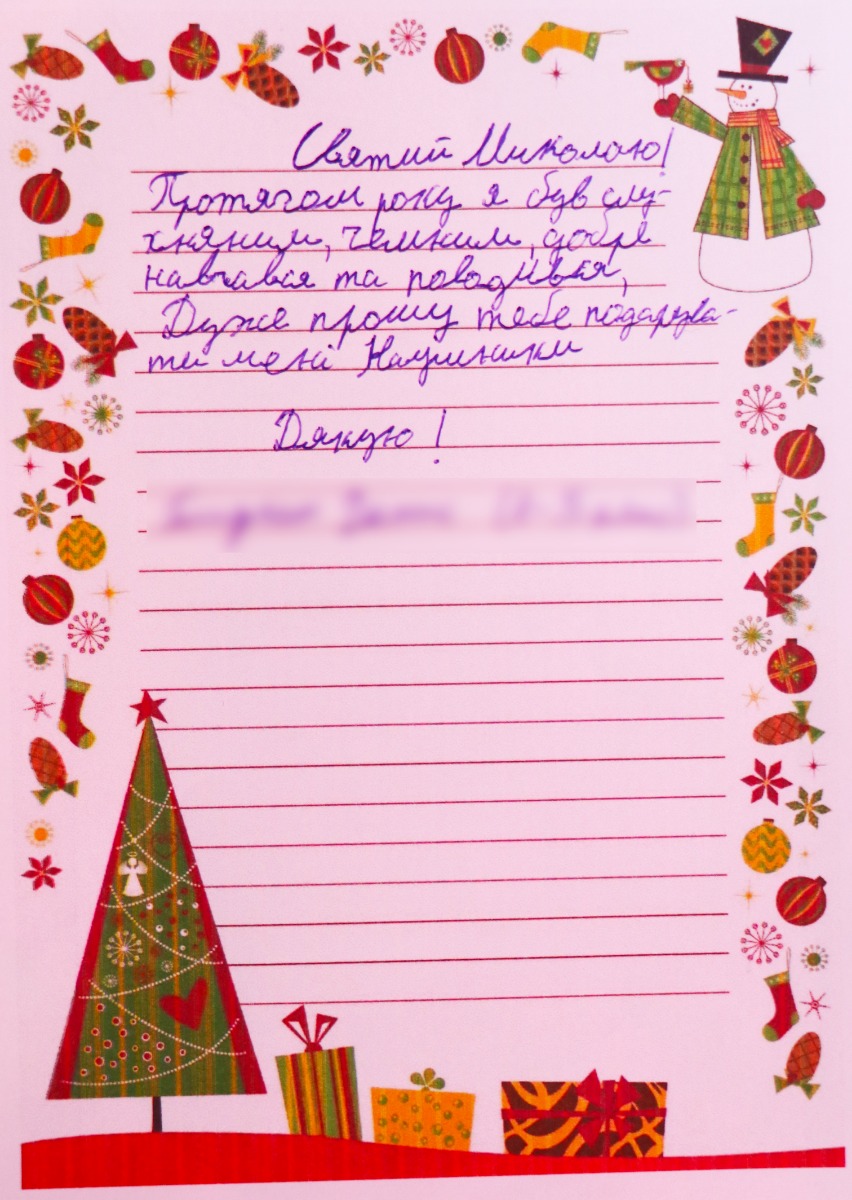 Святий Миколаю!
Протягом року я був слу-
хняним, чемним, добре
навчався та поводився,
Дуже прошу тебе подарува-
ти мені Навушники
Дякую!